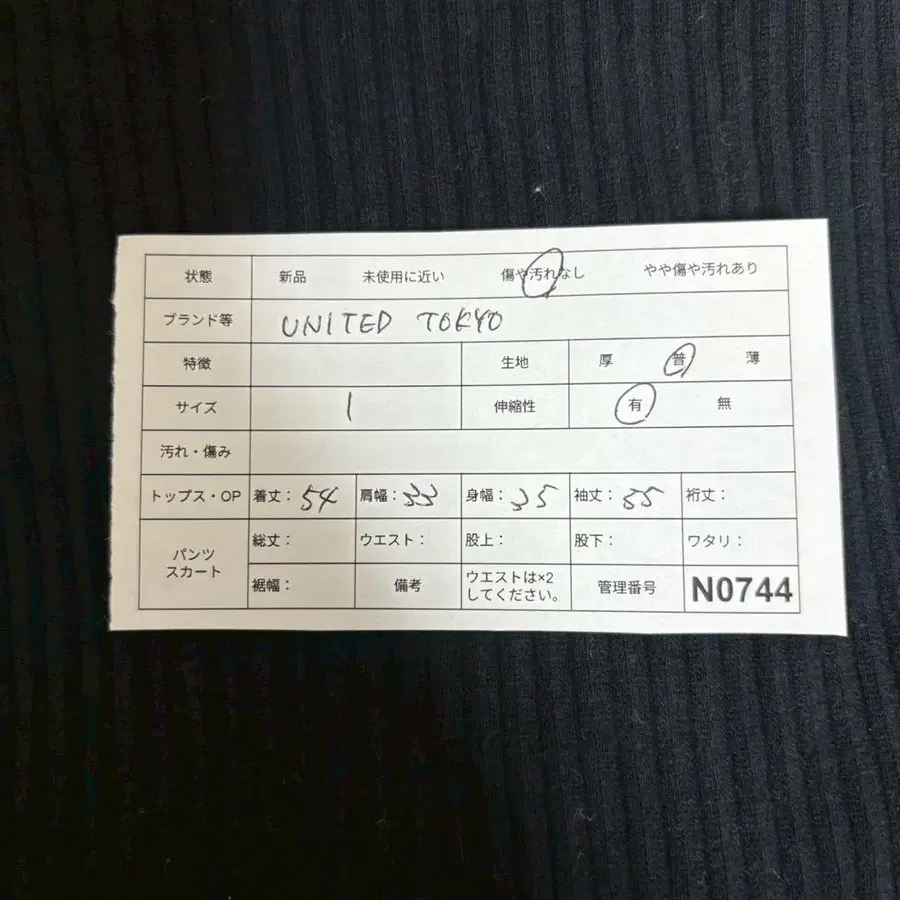 状態 新品 未使用に近い 傷や汚れなし やや傷や汚れあり
ブランド等 UNITED TOKYO
特徴 生地 厚 普 薄
サイズ 1 伸縮性 有 無
汚れ・傷み
トップス・OP 着丈： 54 肩幅： 33 身幅： 35 袖丈： 裄丈：
パンツ スカート 総丈： ウエスト： 股上： 股下： ワタリ：
裾幅： 備考 ウエストは×2 してください。 管理番号 N0744